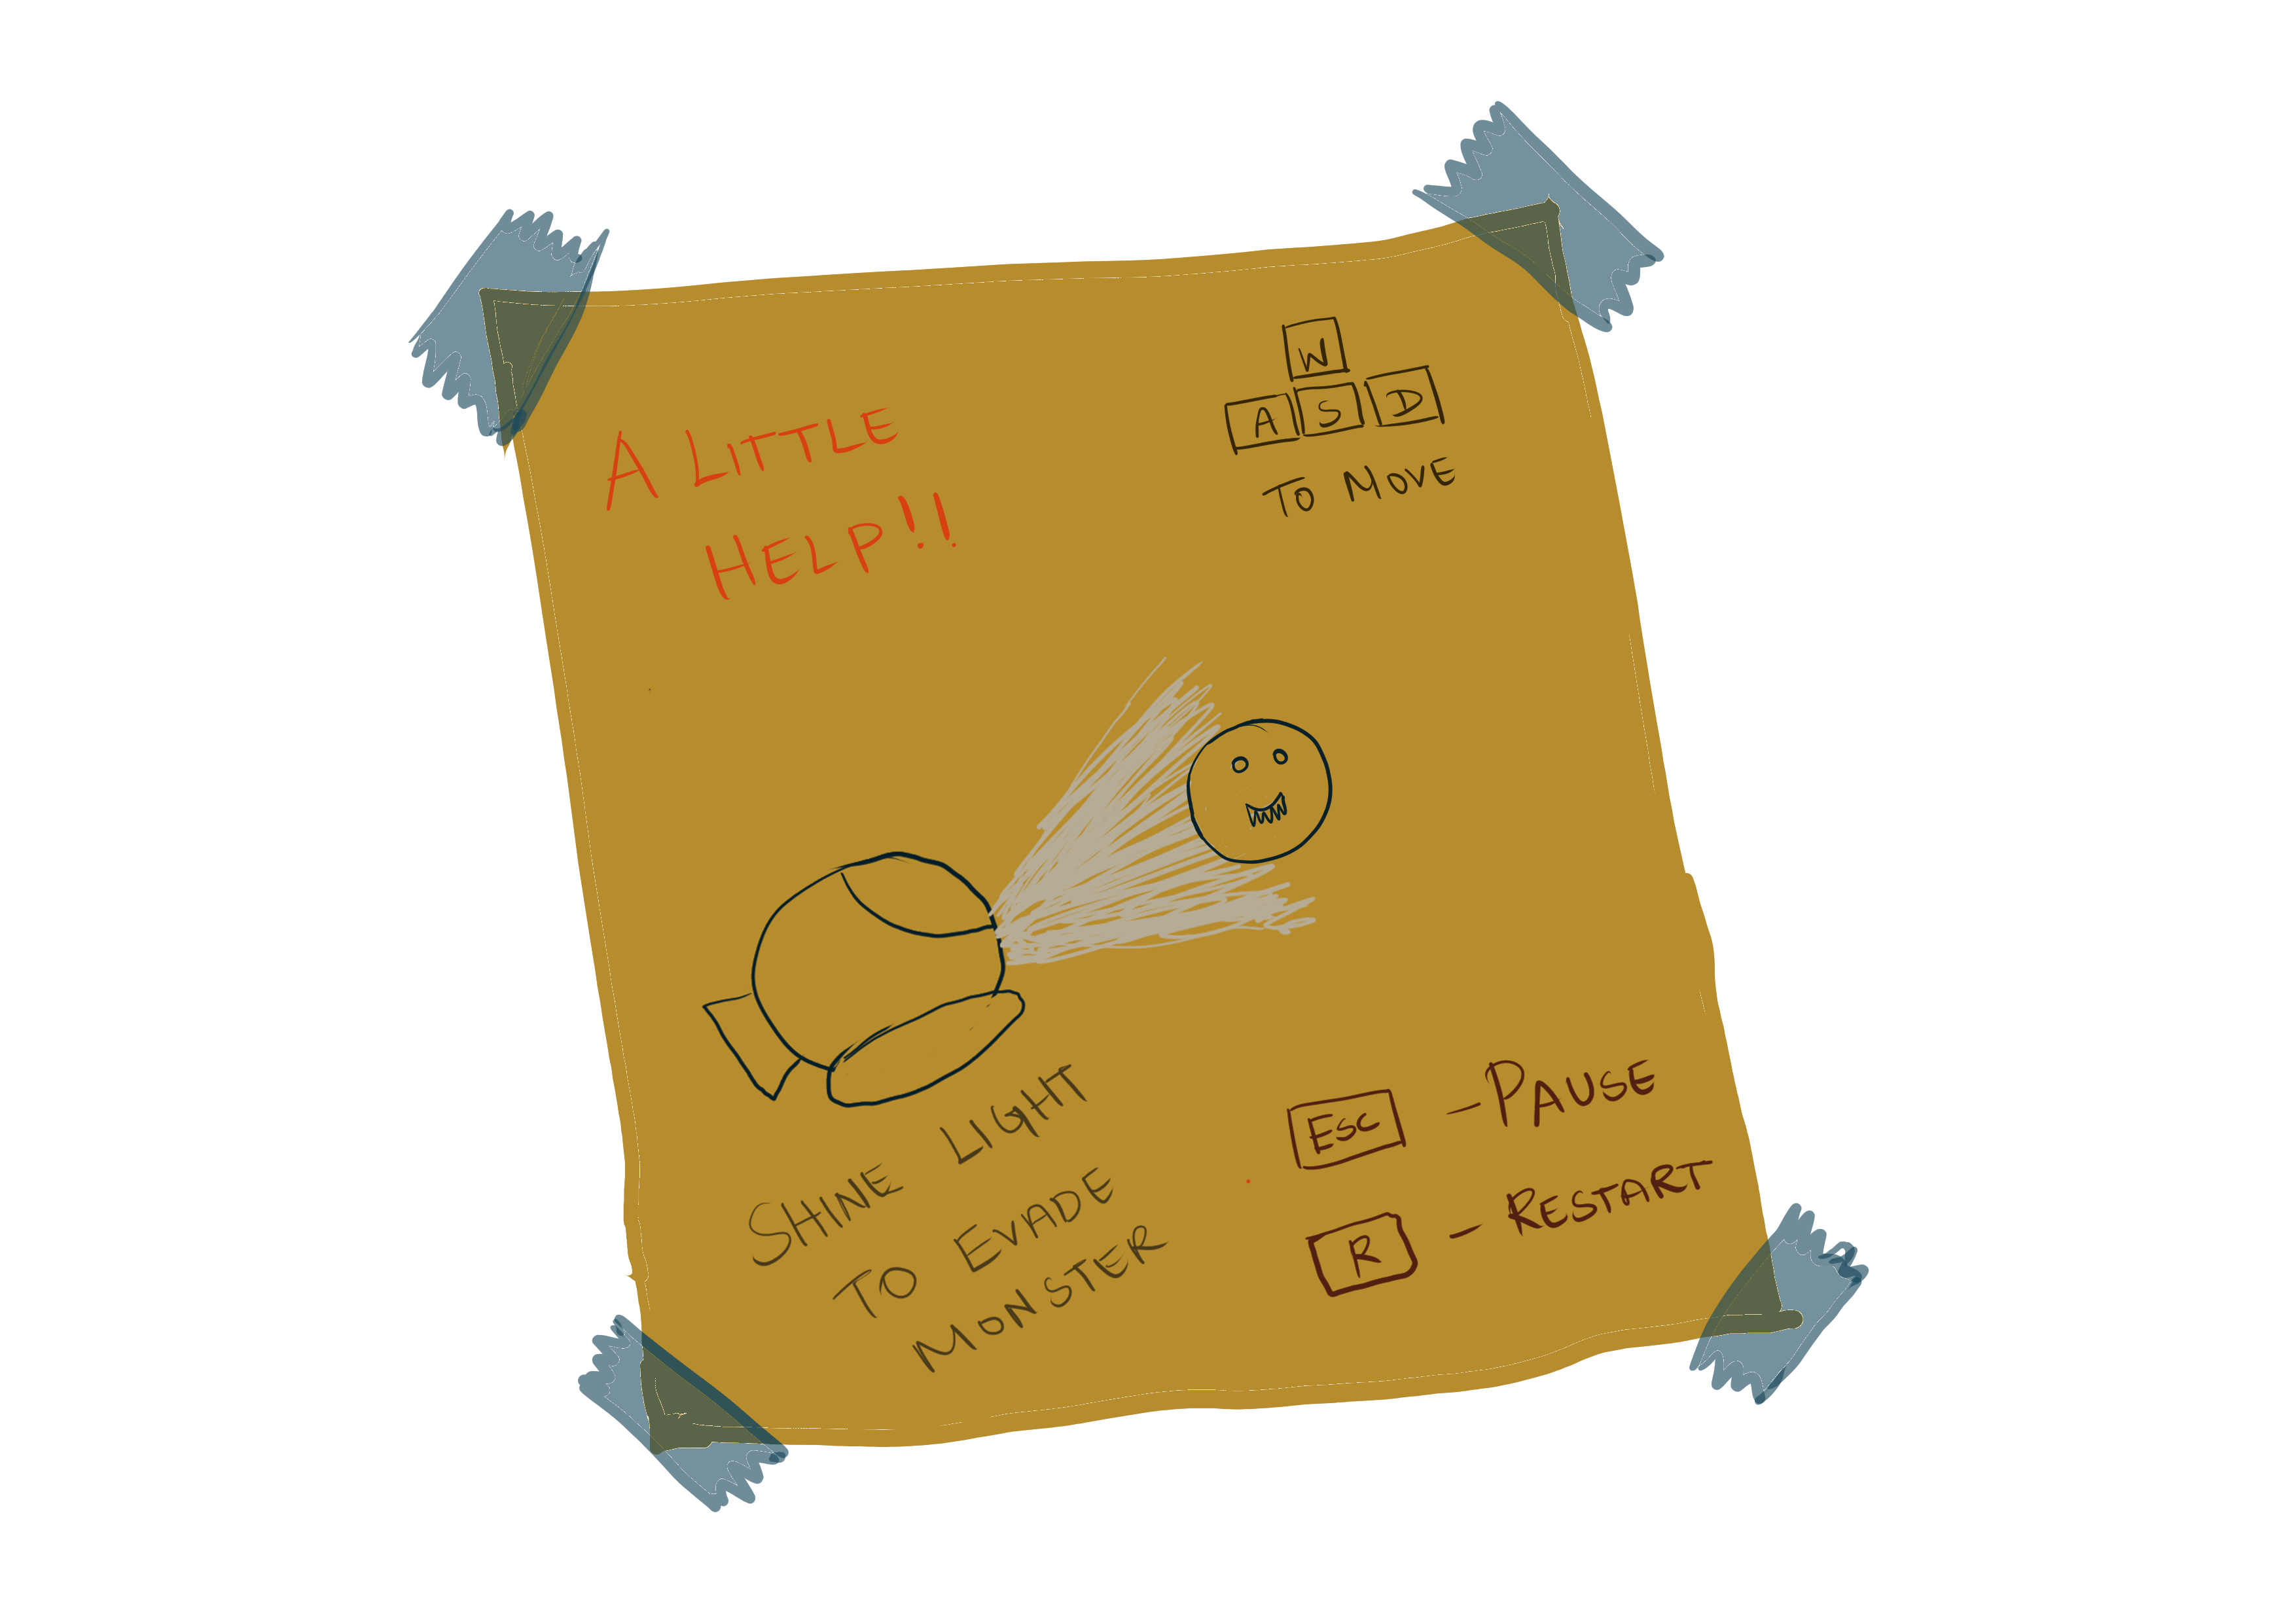 A LITTLE
HELP!!
W
A S D
TO MOVE
SHINE LIGHT
TO EVADE
MONSTER
ESC - PAUSE
R - RESTART